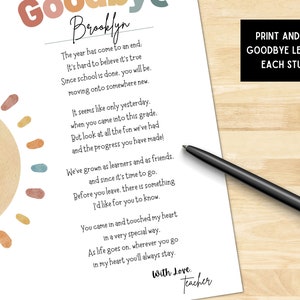 Goodbye
Brooklyn
The year has come to an end;
It's hard to believe it's true
Since school is done, you will be,
moving onto somewhere new.
It seems like only yesterday,
when you came into this grade.
But look at all the fun we've had
and the progress you have made!
We've grown as learners and as friends,
and since it's time to go,
Before you leave, there is something
I'd like for you to know.
You came in and touched my heart
in a very special way.
As life goes on, wherever you go
in my heart you'll always stay.
With Love,
Teacher
PRINT AND
GOODBYE LE
EACH STU